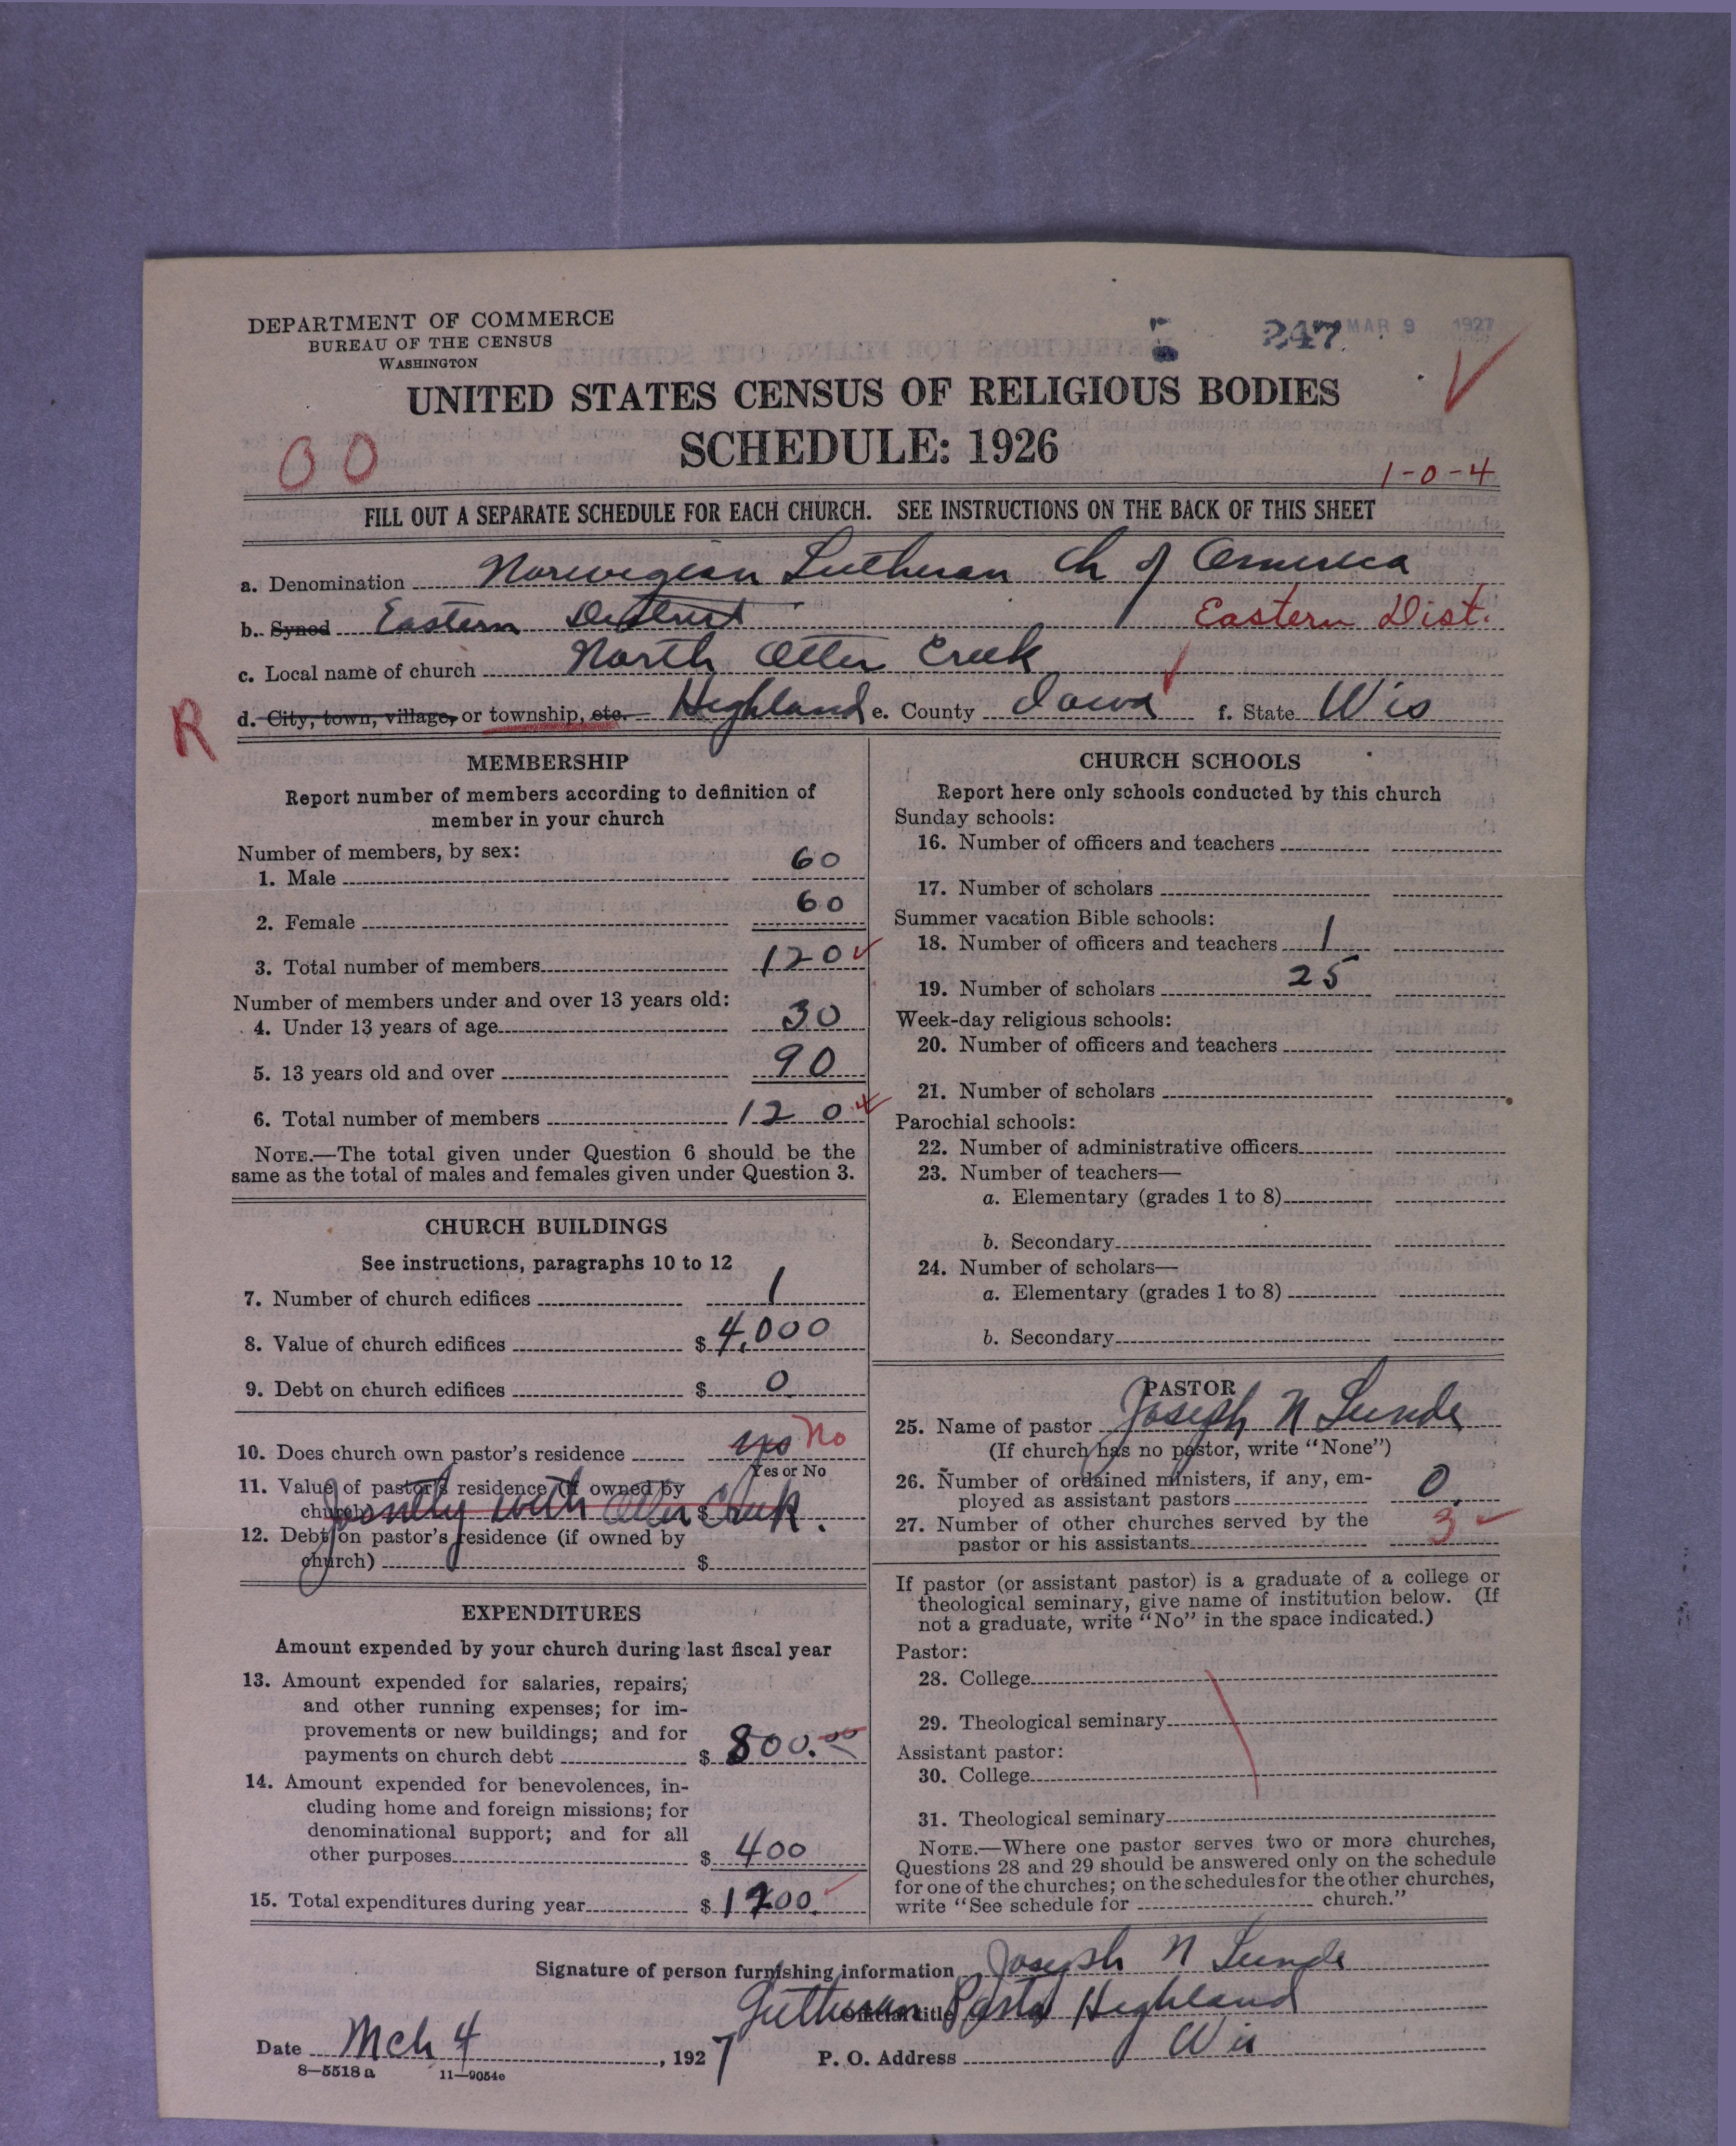 DEPARTMENT OF COMMERCE
BUREAU OF THE CENSUS
WASHINGTON
247 MAR 9 1927
UNITED STATES CENSUS OF RELIGIOUS BODIES
SCHEDULE: 1926
00
1-0-4
FILL OUT A SEPARATE SCHEDULE FOR EACH CHURCH. SEE INSTRUCTIONS ON THE BACK OF THIS SHEET
a. Denomination Norwegian Lutheran Ch of America
b. Synod Eastern District Eastern Dist.
c. Local name of church North Otter Creek
R d. City, town, village, or township, etc. Highland e. County Iowa f. State Wis
MEMBERSHIP
Report number of members according to definition of
member in your church
Number of members, by sex:
1. Male 60
2. Female 60
3. Total number of members 120
Number of members under and over 13 years old:
4. Under 13 years of age 30
5. 13 years old and over 90
6. Total number of members 120
NOTE.—The total given under Question 6 should be the
same as the total of males and females given under Question 3.
CHURCH BUILDINGS
See instructions, paragraphs 10 to 12
7. Number of church edifices 1
8. Value of church edifices $ 4,000
9. Debt on church edifices $ 0
10. Does church own pastor's residence yes No
Yes or No
11. Value of pastor's residence (if owned by
church) $
Jointly with Otter Creek.
12. Debt on pastor's residence (if owned by
church) $
EXPENDITURES
Amount expended by your church during last fiscal year
13. Amount expended for salaries, repairs;
and other running expenses; for im-
provements or new buildings; and for
payments on church debt $ 800.00
14. Amount expended for benevolences, in-
cluding home and foreign missions; for
denominational support; and for all
other purposes $ 400
15. Total expenditures during year $ 1200.
CHURCH SCHOOLS
Report here only schools conducted by this church
Sunday schools:
16. Number of officers and teachers
17. Number of scholars
Summer vacation Bible schools:
18. Number of officers and teachers 1
19. Number of scholars 25
Week-day religious schools:
20. Number of officers and teachers
21. Number of scholars
Parochial schools:
22. Number of administrative officers
23. Number of teachers—
a. Elementary (grades 1 to 8)
b. Secondary
24. Number of scholars—
a. Elementary (grades 1 to 8)
b. Secondary
PASTOR
25. Name of pastor Joseph N Lunde
(If church has no pastor, write "None")
26. Number of ordained ministers, if any, em-
ployed as assistant pastors 0
27. Number of other churches served by the
pastor or his assistants 3
If pastor (or assistant pastor) is a graduate of a college or
theological seminary, give name of institution below. (If
not a graduate, write "No" in the space indicated.)
Pastor:
28. College
29. Theological seminary
Assistant pastor:
30. College
31. Theological seminary
NOTE.—Where one pastor serves two or more churches,
Questions 28 and 29 should be answered only on the schedule
for one of the churches; on the schedules for the other churches,
write "See schedule for church."
Signature of person furnishing information Joseph N Lunde
Official title Lutheran Pastor Highland
Date Mch 4, 1927 P. O. Address Wis
8—5518 a 11—9054c